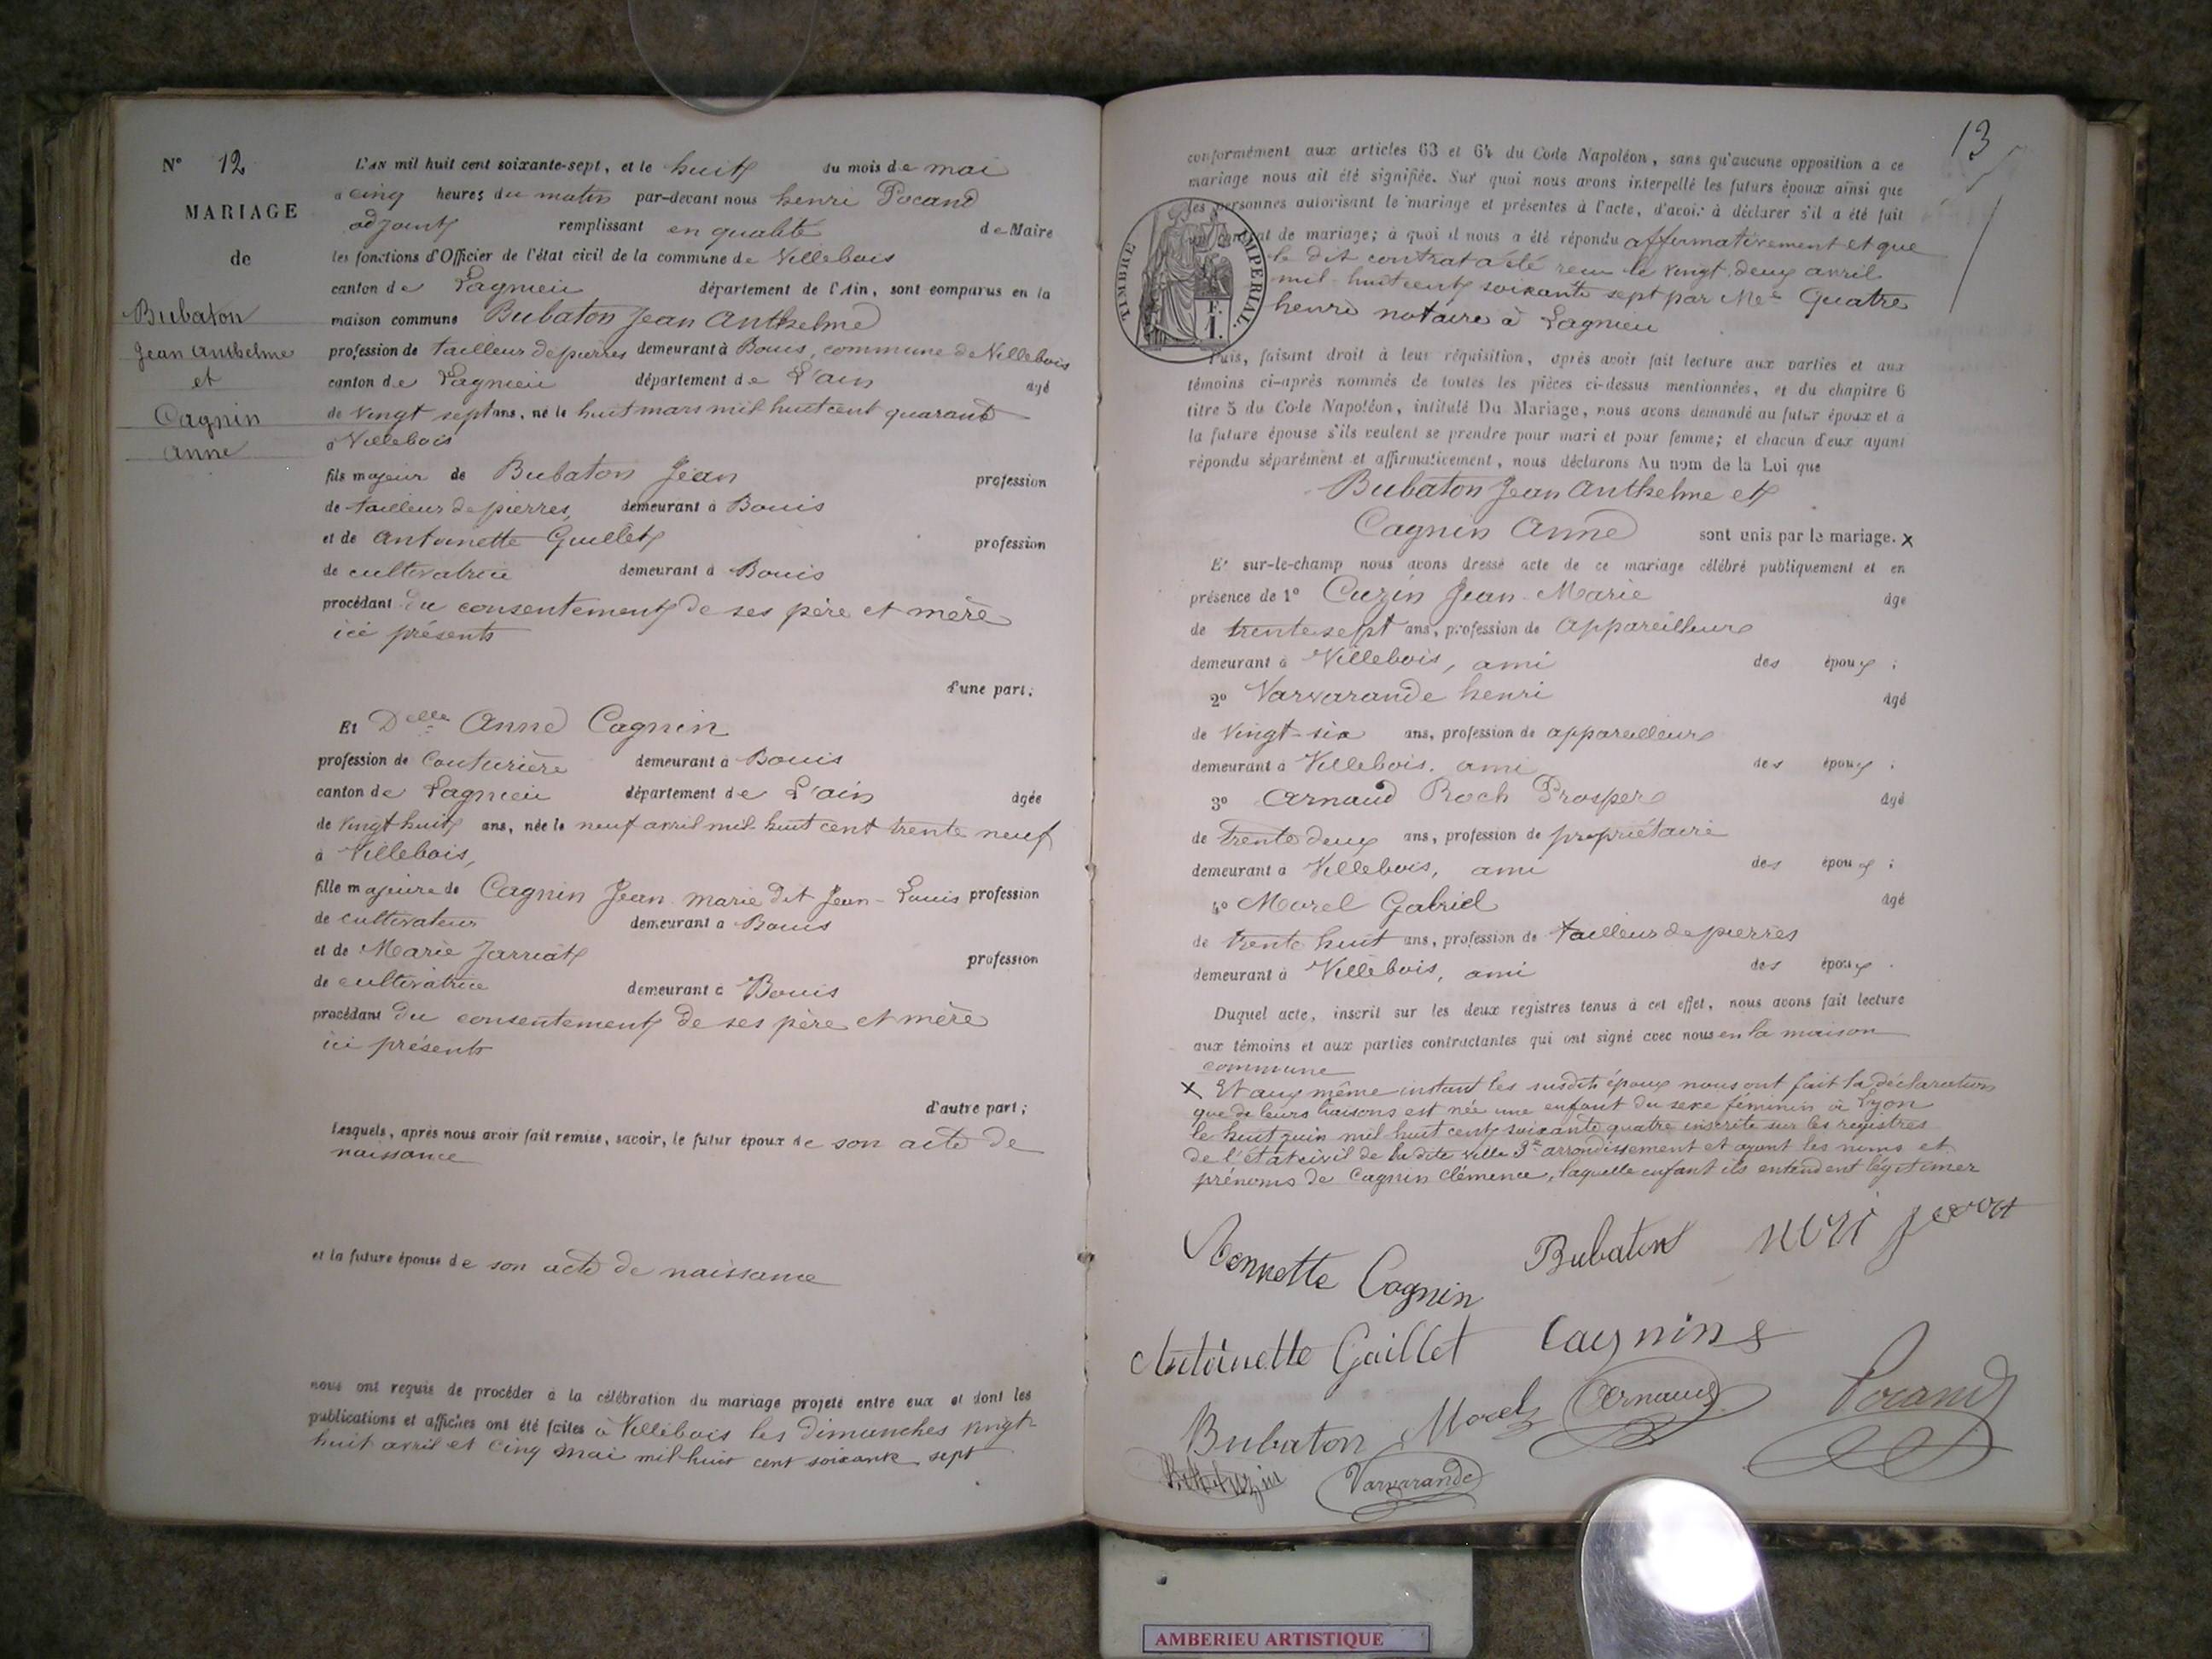 N° 12
MARIAGE
de
Bubaton
Jean Anthelme
et
Cagnin
Anne
L'AN mil huit cent soixante-sept, et le huit du mois de mai
à cinq heures du matin par-devant nous henri Pocand
adjoint remplissant en qualité de Maire
les fonctions d'Officier de l'état civil de la commune de Villebois
canton de Lagnieu département de l'Ain, sont comparus en la
maison commune Bubaton Jean Anthelme
profession de tailleur de pierres demeurant à Bouis, commune de Villebois
canton de Lagnieu département de L'ain âgé
de vingt sept ans, né le huit mars mil huit cent quarante
à Villebois
fils majeur de Bubaton Jean profession
de tailleur de pierres, demeurant à Bouis
et de Antoinette Guillet profession
de cultivatrice demeurant à Bouis
procédant du consentement de ses père et mère
ici présents
d'une part;
Et Delle Anne Cagnin
profession de Couturière demeurant à Bouis
canton de Lagnieu département de L'ain âgée
de vingt huit ans, née le neuf avril mil huit cent trente neuf
à Villebois,
fille majeure de Cagnin Jean marie dit Jean-Louis profession
de cultivateur demeurant à Bouis
et de Marie Jarriat profession
de cultivatrice demeurant à Bouis
procédant du consentement de ses père et mère
ici présents
d'autre part;
Lesquels, après nous avoir fait remise, savoir, le futur époux de son acte de
naissance
et la future épouse de son acte de naissance
nous ont requis de procéder à la célébration du mariage projeté entre eux et dont les
publications et affiches ont été faites à Villebois les dimanches vingt
huit avril et cinq mai mil huit cent soixante sept
13
conformément aux articles 63 et 64 du Code Napoléon, sans qu'aucune opposition a ce
mariage nous ait été signifiée. Sur quoi nous avons interpellé les futurs époux ainsi que
les personnes autorisant le mariage et présentes à l'acte, d'avoir à déclarer s'il a été fait
contrat de mariage; à quoi il nous a été répondu affirmativement et que
le dit contrat a été reçu le vingt deux avril
mil huit cent soixante sept par Me Quatre
henri notaire à Lagnieu
TIMBRE IMPERIAL.
F.
1.
Puis, faisant droit à leur réquisition, après avoir fait lecture aux parties et aux
témoins ci-après nommés de toutes les pièces ci-dessus mentionnées, et du chapitre 6
titre 5 du Code Napoléon, intitulé Du Mariage, nous avons demandé au futur époux et a
la future épouse s'ils veulent se prendre pour mari et pour femme; et chacun d'eux ayant
répondu séparément et affirmativement, nous déclarons Au nom de la Loi que
Bubaton Jean Anthelme et
Cagnin Anne sont unis par le mariage. x
Et sur-le-champ nous avons dressé acte de ce mariage célébré publiquement et en
présence de 1° Cuzin Jean-Marie âgé
de trente sept ans, profession de Appareilleur
demeurant à Villebois, ami des époux ;
2° Varvarande henri âgé
de vingt-six ans, profession de appareilleur
demeurant à Villebois, ami des époux ;
3° Arnaud Roch Prosper âgé
de trente deux ans, profession de propriétaire
demeurant à Villebois, ami des époux ;
4° Morel Gabriel âgé
de trente huit ans, profession de tailleur de pierres
demeurant à Villebois, ami des époux .
Duquel acte, inscrit sur les deux registres tenus à cet effet, nous avons fait lecture
aux témoins et aux parties contractantes qui ont signé avec nous en la maison
commune
x Et aux même instant les susdits époux nous ont fait la déclaration
que de leurs liaisons est née une enfant du sexe féminin à Lyon
le huit juin mil huit cent soixante quatre inscrite sur les registres
de l'état civil de la dite ville 3e arrondissement et ayant les noms et
prénoms de Cagnin Clémence, laquelle enfant ils entendent légitimer
Nennette Cagnin
Bubaton
Antoinette Gaillet
Cagnin
Bubaton
Morel
Arnaud
Pocand
Cuzin
Varvarande
AMBERIEU ARTISTIQUE